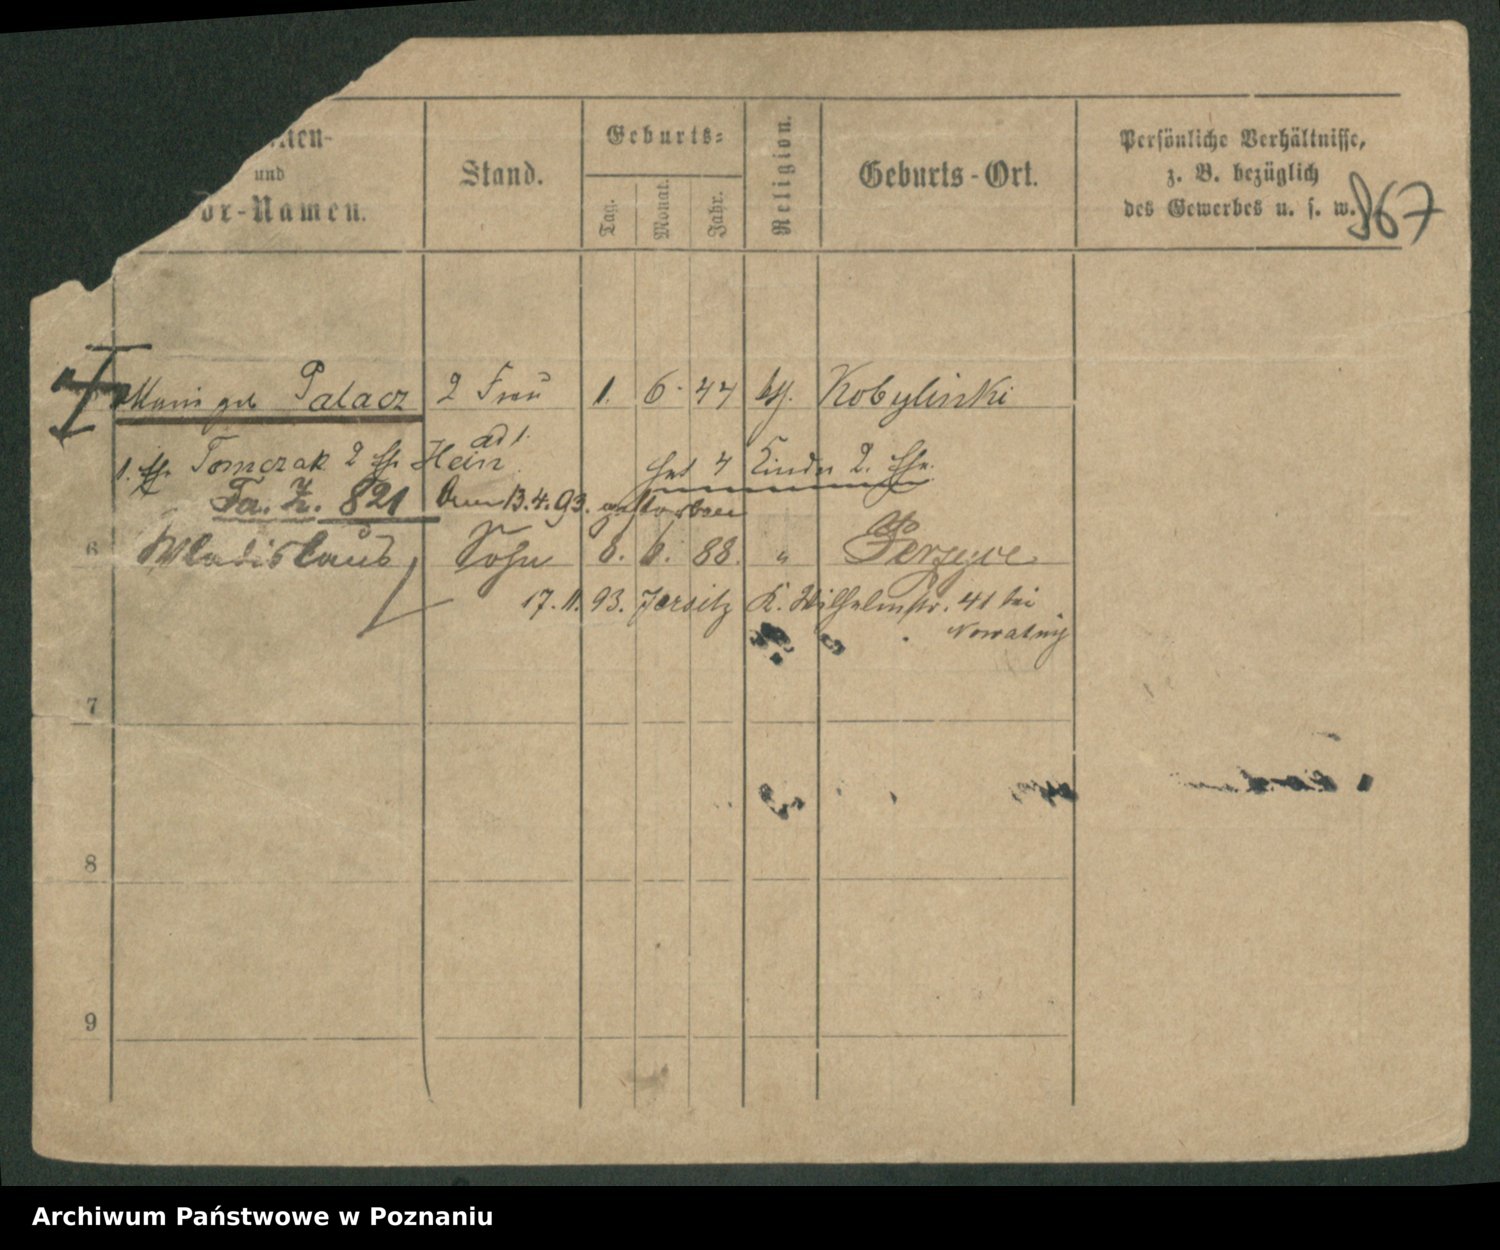 und
Vor-Namen.
Stand.
Geburts-
Tag.
Monat.
Jahr.
Religion.
Geburts-Ort.
Persönliche Verhältnisse,
z. B. bezüglich
des Gewerbes u. s. w.
867
geb Palacz 2 Frau 1. 6. 47 kth. Kobylinki
ad 1.
1. Eh. Tomczak 2 Eh. Hein hat 4 Kinder 2. Ehe.
Fa. Z. 821 13.4.93. gestorben
6 Wladislaus Sohn 8. 6. 88. " 
17. 11. 93. Jersitz K. Wilhelmstr. 41 bei
7
8
9
Archiwum Państwowe w Poznaniu